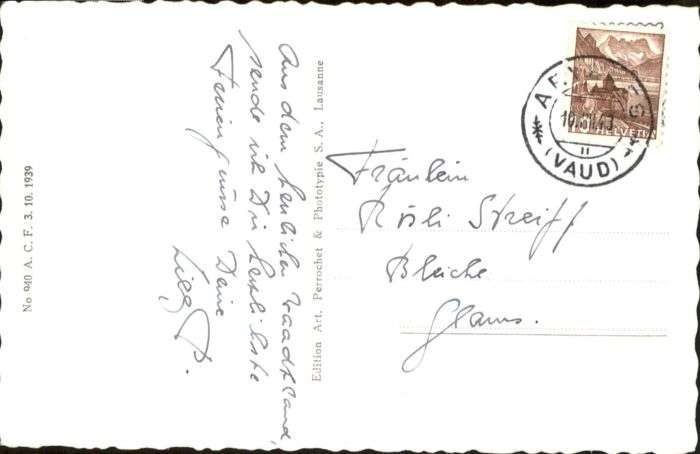 Aus dem herrlichen Waadtland,
sende ich Dir herzlichste
Feriengrüsse Deine
No 940 A. C. F. 3. 10. 1939
Edition Art. Perrochet & Phototypie S. A., Lausanne
HELVETIA
(VAUD)
Fräulein
Rösli Streiff
Bleiche
Glarus.